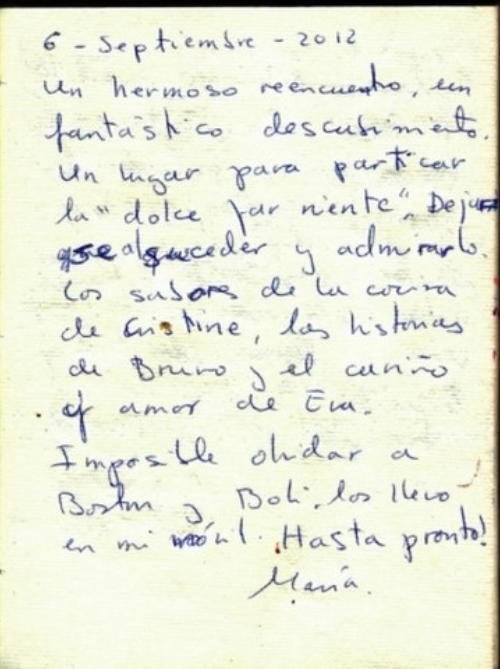 6 - Septiembre - 2012
Un hermoso reencuentro, un
fantástico descubrimiento.
Un lugar para particar
la "dolce far niente". Dejar
suceder y admirarlo.
Los sabores de la cocina
de Cristine, las historias
de Bruno y el cariño
y amor de Eva.
Imposible olvidar a
Boston y Boli, los llevo
en mi móvil. ¡Hasta pronto!
María.